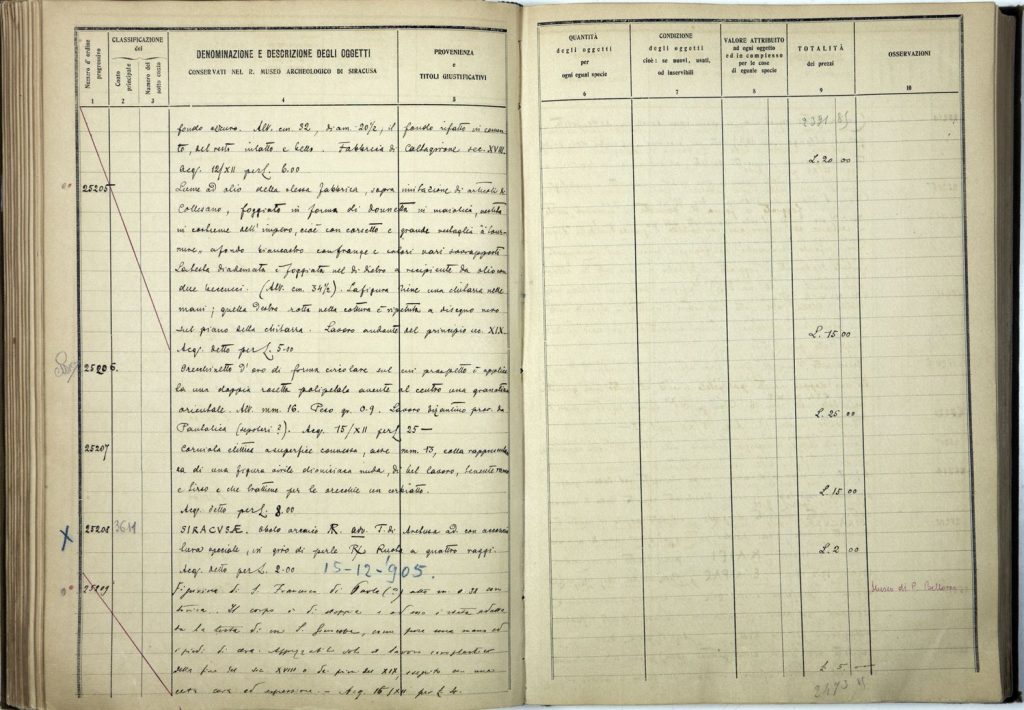 Numero d'ordine progressivo
CLASSIFICAZIONE del
Conto principale
Numero del sotto conto
DENOMINAZIONE E DESCRIZIONE DEGLI OGGETTI
CONSERVATI NEL R. MUSEO ARCHEOLOGICO DI SIRACUSA
PROVENIENZA
e
TITOLI GIUSTIFICATIVI
1 2 3 4 5
fondo azzuro. Alt. cm. 22, diam. 20½, il fondo rifatto in cemen-
to, del resto intatto e bello. Fabbrica di Caltagirone sec. XVIII.
Acq. 12/XII per £. 6.00
25205 Lume ad olio della stessa fabbrica, sopra imitazione di articoli di
Collesano, foggiato in forma di donnetta in maiolica, vestita
in costume dell'impero, cioè con corsetto e grande vestaglia
fondo biancastro con frange e colori vari sovrapposti.
La testa diademata è foggiata nel di dietro a recipiente da olio con
due beccucci. (Alt. cm. 34½). La figura tiene una chitarra nelle
mani; quella destra rotta nella cottura è ripetuta a disegno nero
sul piano della chitarra. Lavoro andante del principio sec. XIX.
Acq. detto per £. 5.00
25206. Orecchinetto d'oro di forma circolare sul cui prospetto è applica-
ta una doppia rosetta polipetala avente al centro una granatina
orientale. Alt. mm. 16. Peso gr. 0.9. Lavoro bizantino prov. da
Pantalica (sepolcri?). Acq. 15/XII per £ 25 —
25207 Corniola ellittica a superficie connessa, asse mm. 13, colla rappresentan-
za di una figura virile dionisiaca nuda, di bel lavoro, tenente
e tirso e che trattiene per le orecchie un
Acq. detto per £. 8.00
X 25208 36M SIRACUSÆ. Obolo arcaico Æ. adv. T. di Aretusa ad. con acconcia-
tura speciale, in giro di perle R/ Ruota a quattro raggi.
Acq. detto per £. 2.00 15-12-905.
25209 Figurina di S. Francesco di Paola (?) alta m. 0.38 in
Il corpo è di stoppa e ad esso è stata adatta-
ta la testa di un S. Giuseppe, come pure senza mano ed
i piedi di cera.
della fine del sec. XVIII o dei primi del XIX, eseguito con una
certa cura ed espressione. – Acq. 16/XII per £ 4.
QUANTITÀ
degli oggetti
per
ogni eguai specie
CONDIZIONE
degli oggetti
cioè: se nuovi, usati,
od inservibili
VALORE ATTRIBUITO
ad ogni oggetto
ed in complesso
per le cose
di eguale specie
TOTALITÀ
dei prezzi
OSSERVAZIONI
6 7 8 9 10
£. 20 00
£. 15 00
£. 25 00
£. 15 00
£. 2 00
Museo di P. Bellomo
£. 5 —
2473